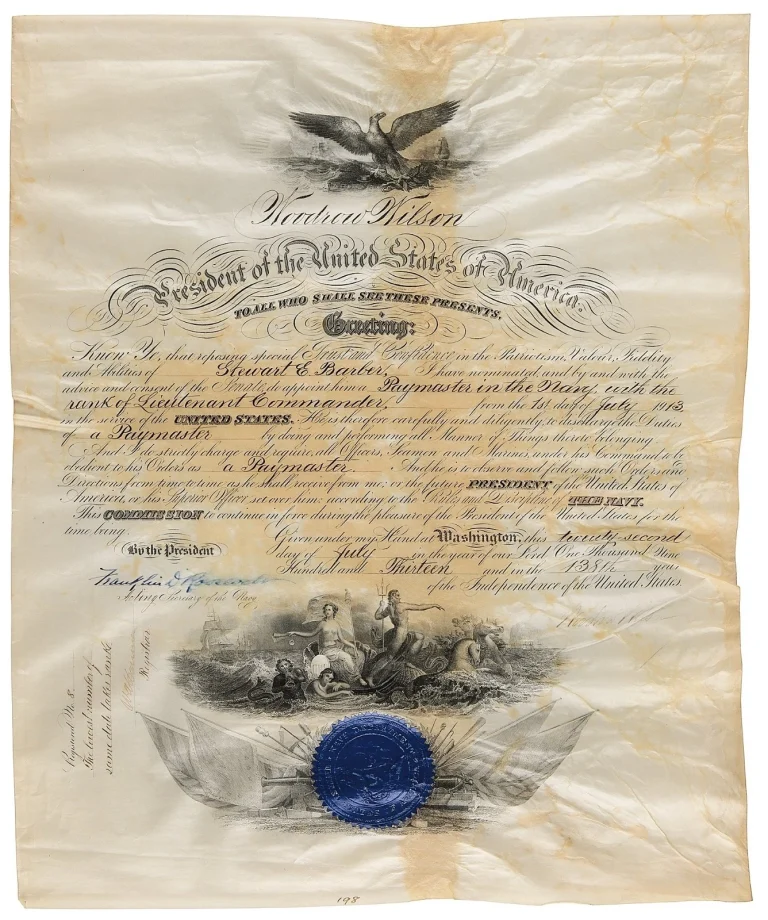 Woodrow Wilson
President of the United States of America.
TO ALL WHO SHALL SEE THESE PRESENTS,
Greeting:
Know Ye, that reposing special Trust and Confidence in the Patriotism, Valour, Fidelity
and Abilities of Stewart E Barber, I have nominated and by and with the
advice and consent of the Senate, do appoint him a Paymaster in the Navy, with the
rank of Lieutenant Commander, from the 1st day of July 1913,
in the service of the UNITED STATES. He is therefore carefully and diligently, to discharge the Duties
of a Paymaster by doing and performing all Manner of Things thereto belonging.
And I do strictly charge and require, all Officers, Seamen and Marines, under his Command to be
obedient to his Orders as a Paymaster. And he is to observe and follow such Orders and
Directions from time to time as he shall receive from me; or the future PRESIDENT of the United States of
America, or his Superior Officer set over him; according to the Rules and Discipline of THE NAVY.
This COMMISSION to continue in force during the pleasure of the President of the United States, for the
time being.
Given under my Hand at Washington, this twenty second
By the President
day of July in the year of our Lord One Thousand Nine
Hundred and Thirteen and in the 138th year
of the Independence of the United States.
Franklin D Roosevelt
Acting Secretary of the Navy.
Registrar
Registered No. 8.
The lowest number of
same date takes rank.
NAVY DEPARTMENT
198